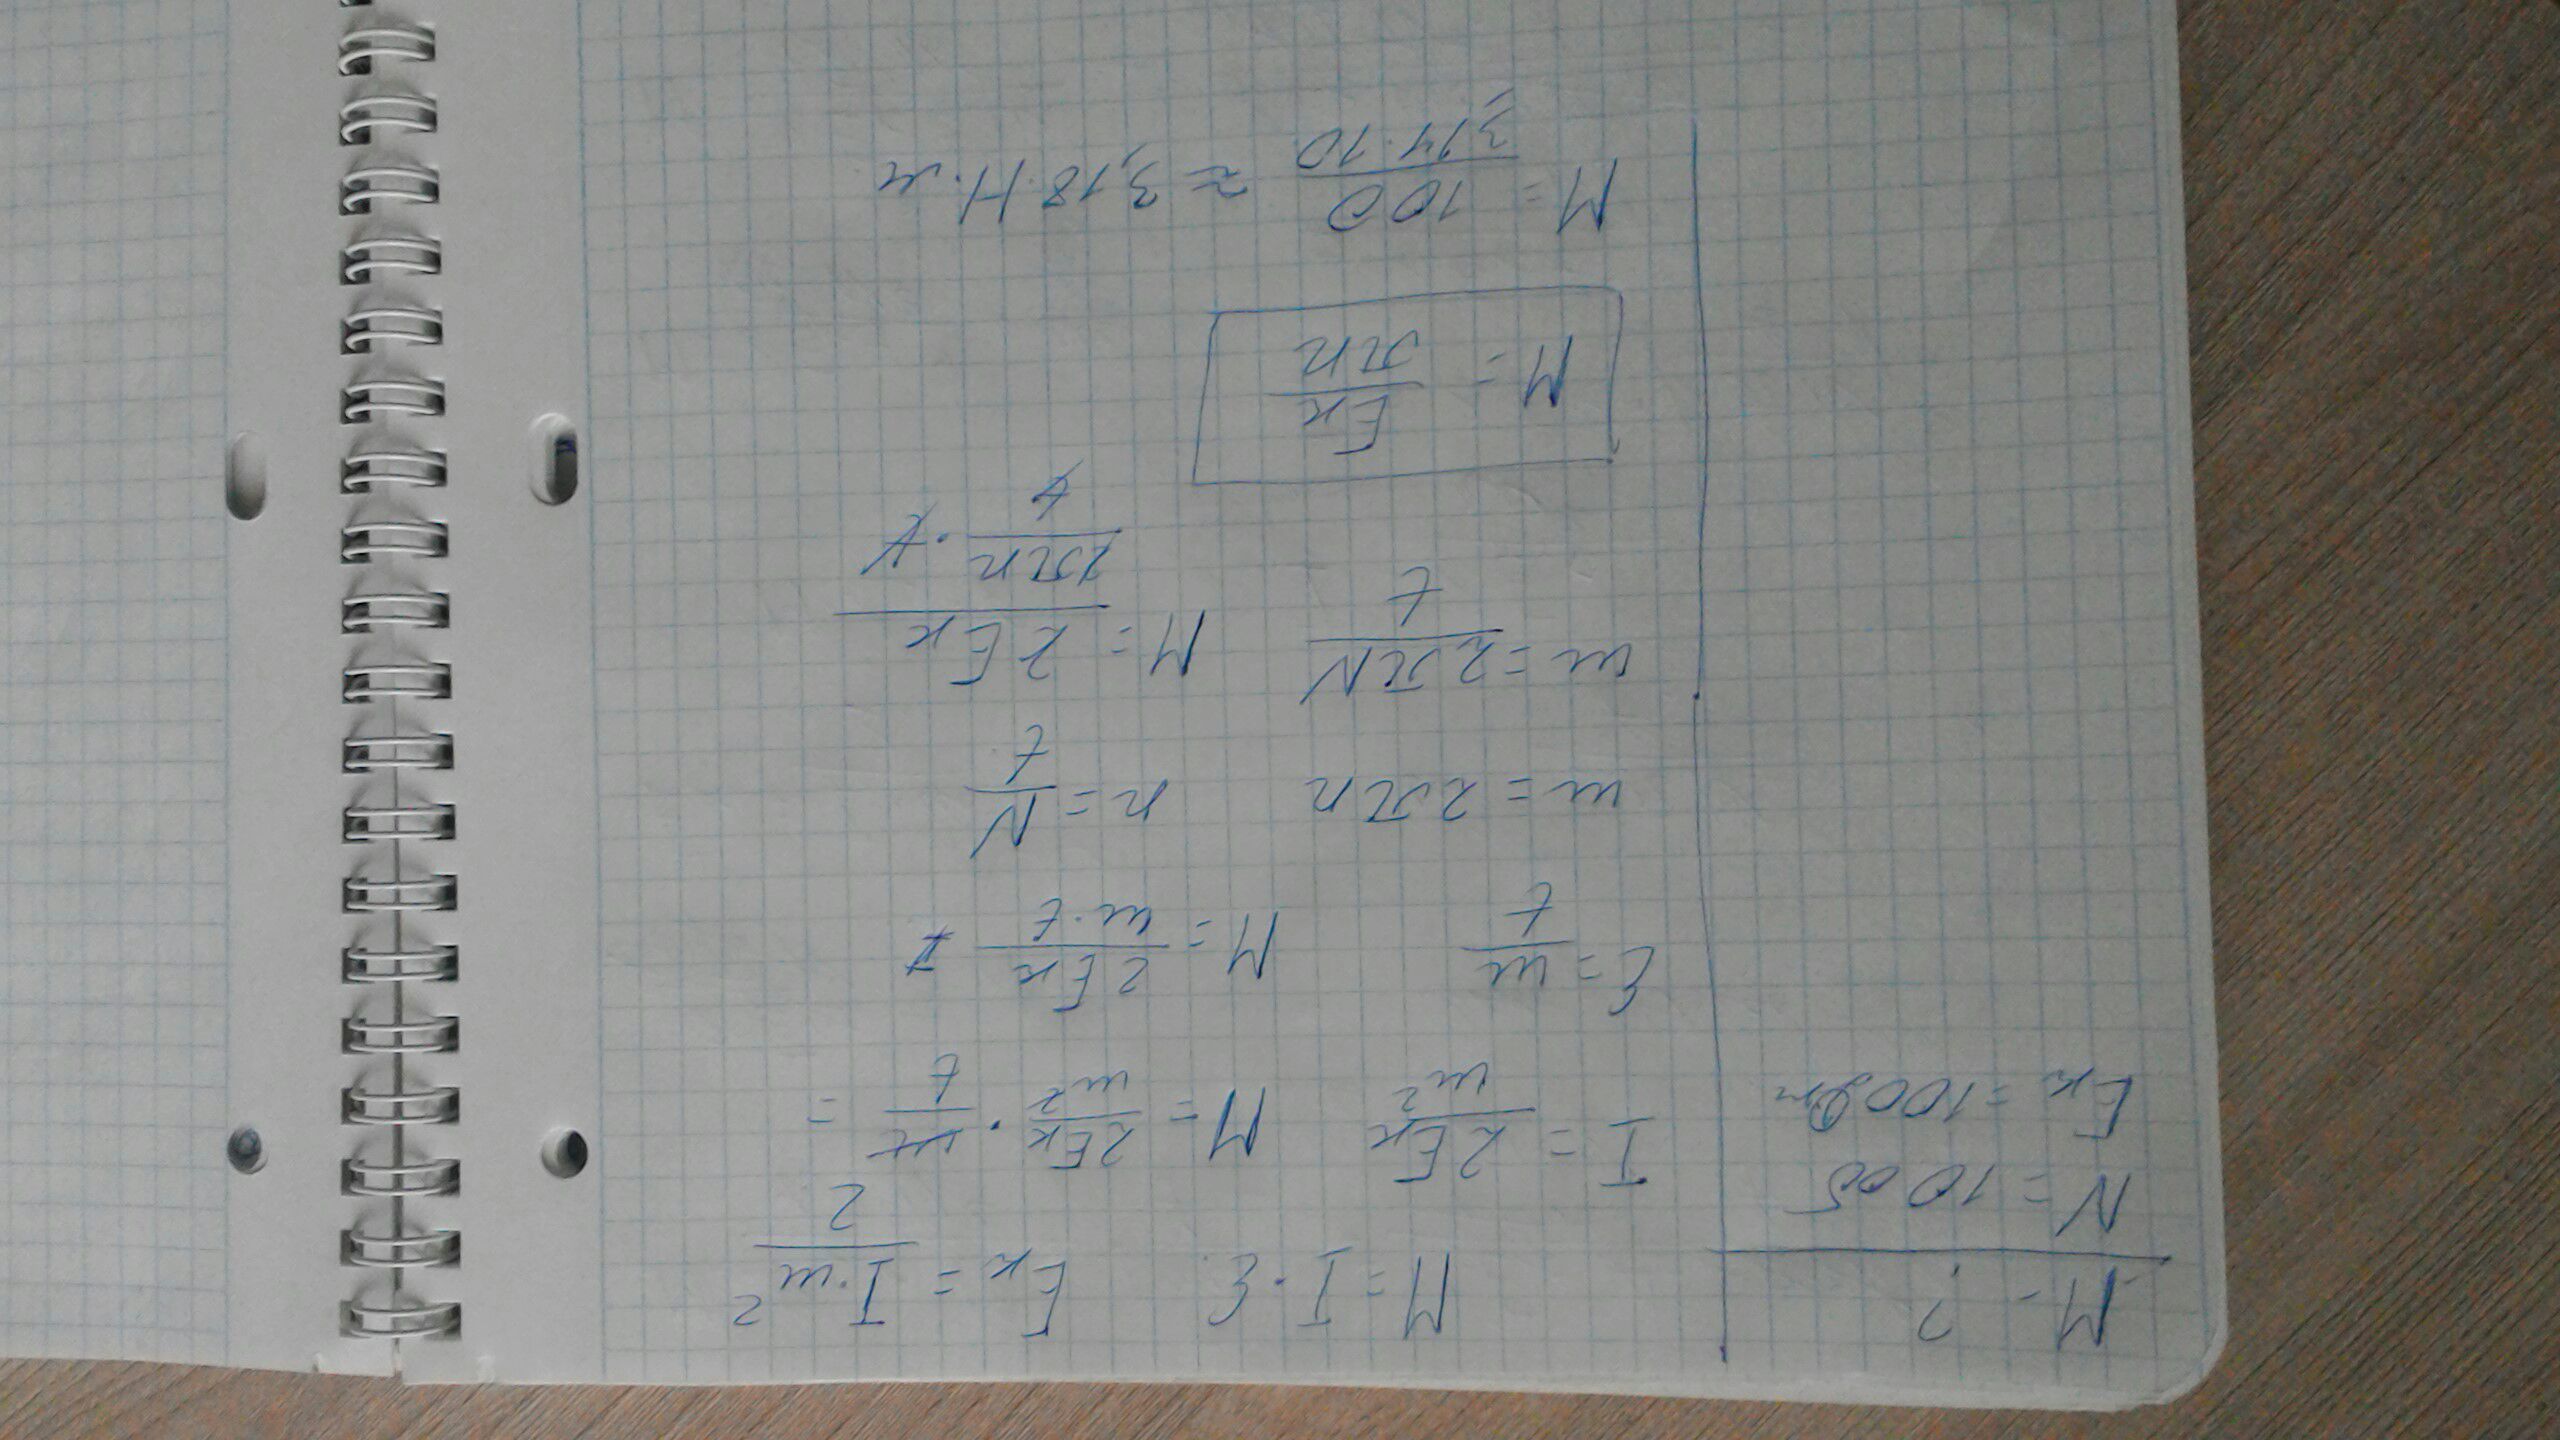 M - ?
N = 10 об
Eк = 100 Дж
M = I · ε Eк = I·ω²/2
I = 2Eк/ω² M = 2Eк/ω² · ω/t =
ε = ω/t M = 2Eк/ω·t
ω = 2πn n = N/t
ω = 2πN/t M = 2Eк/(2πn/t · t)
M = Eк/πn
M = 100/3,14·10 ≈ 3,18 Н·м